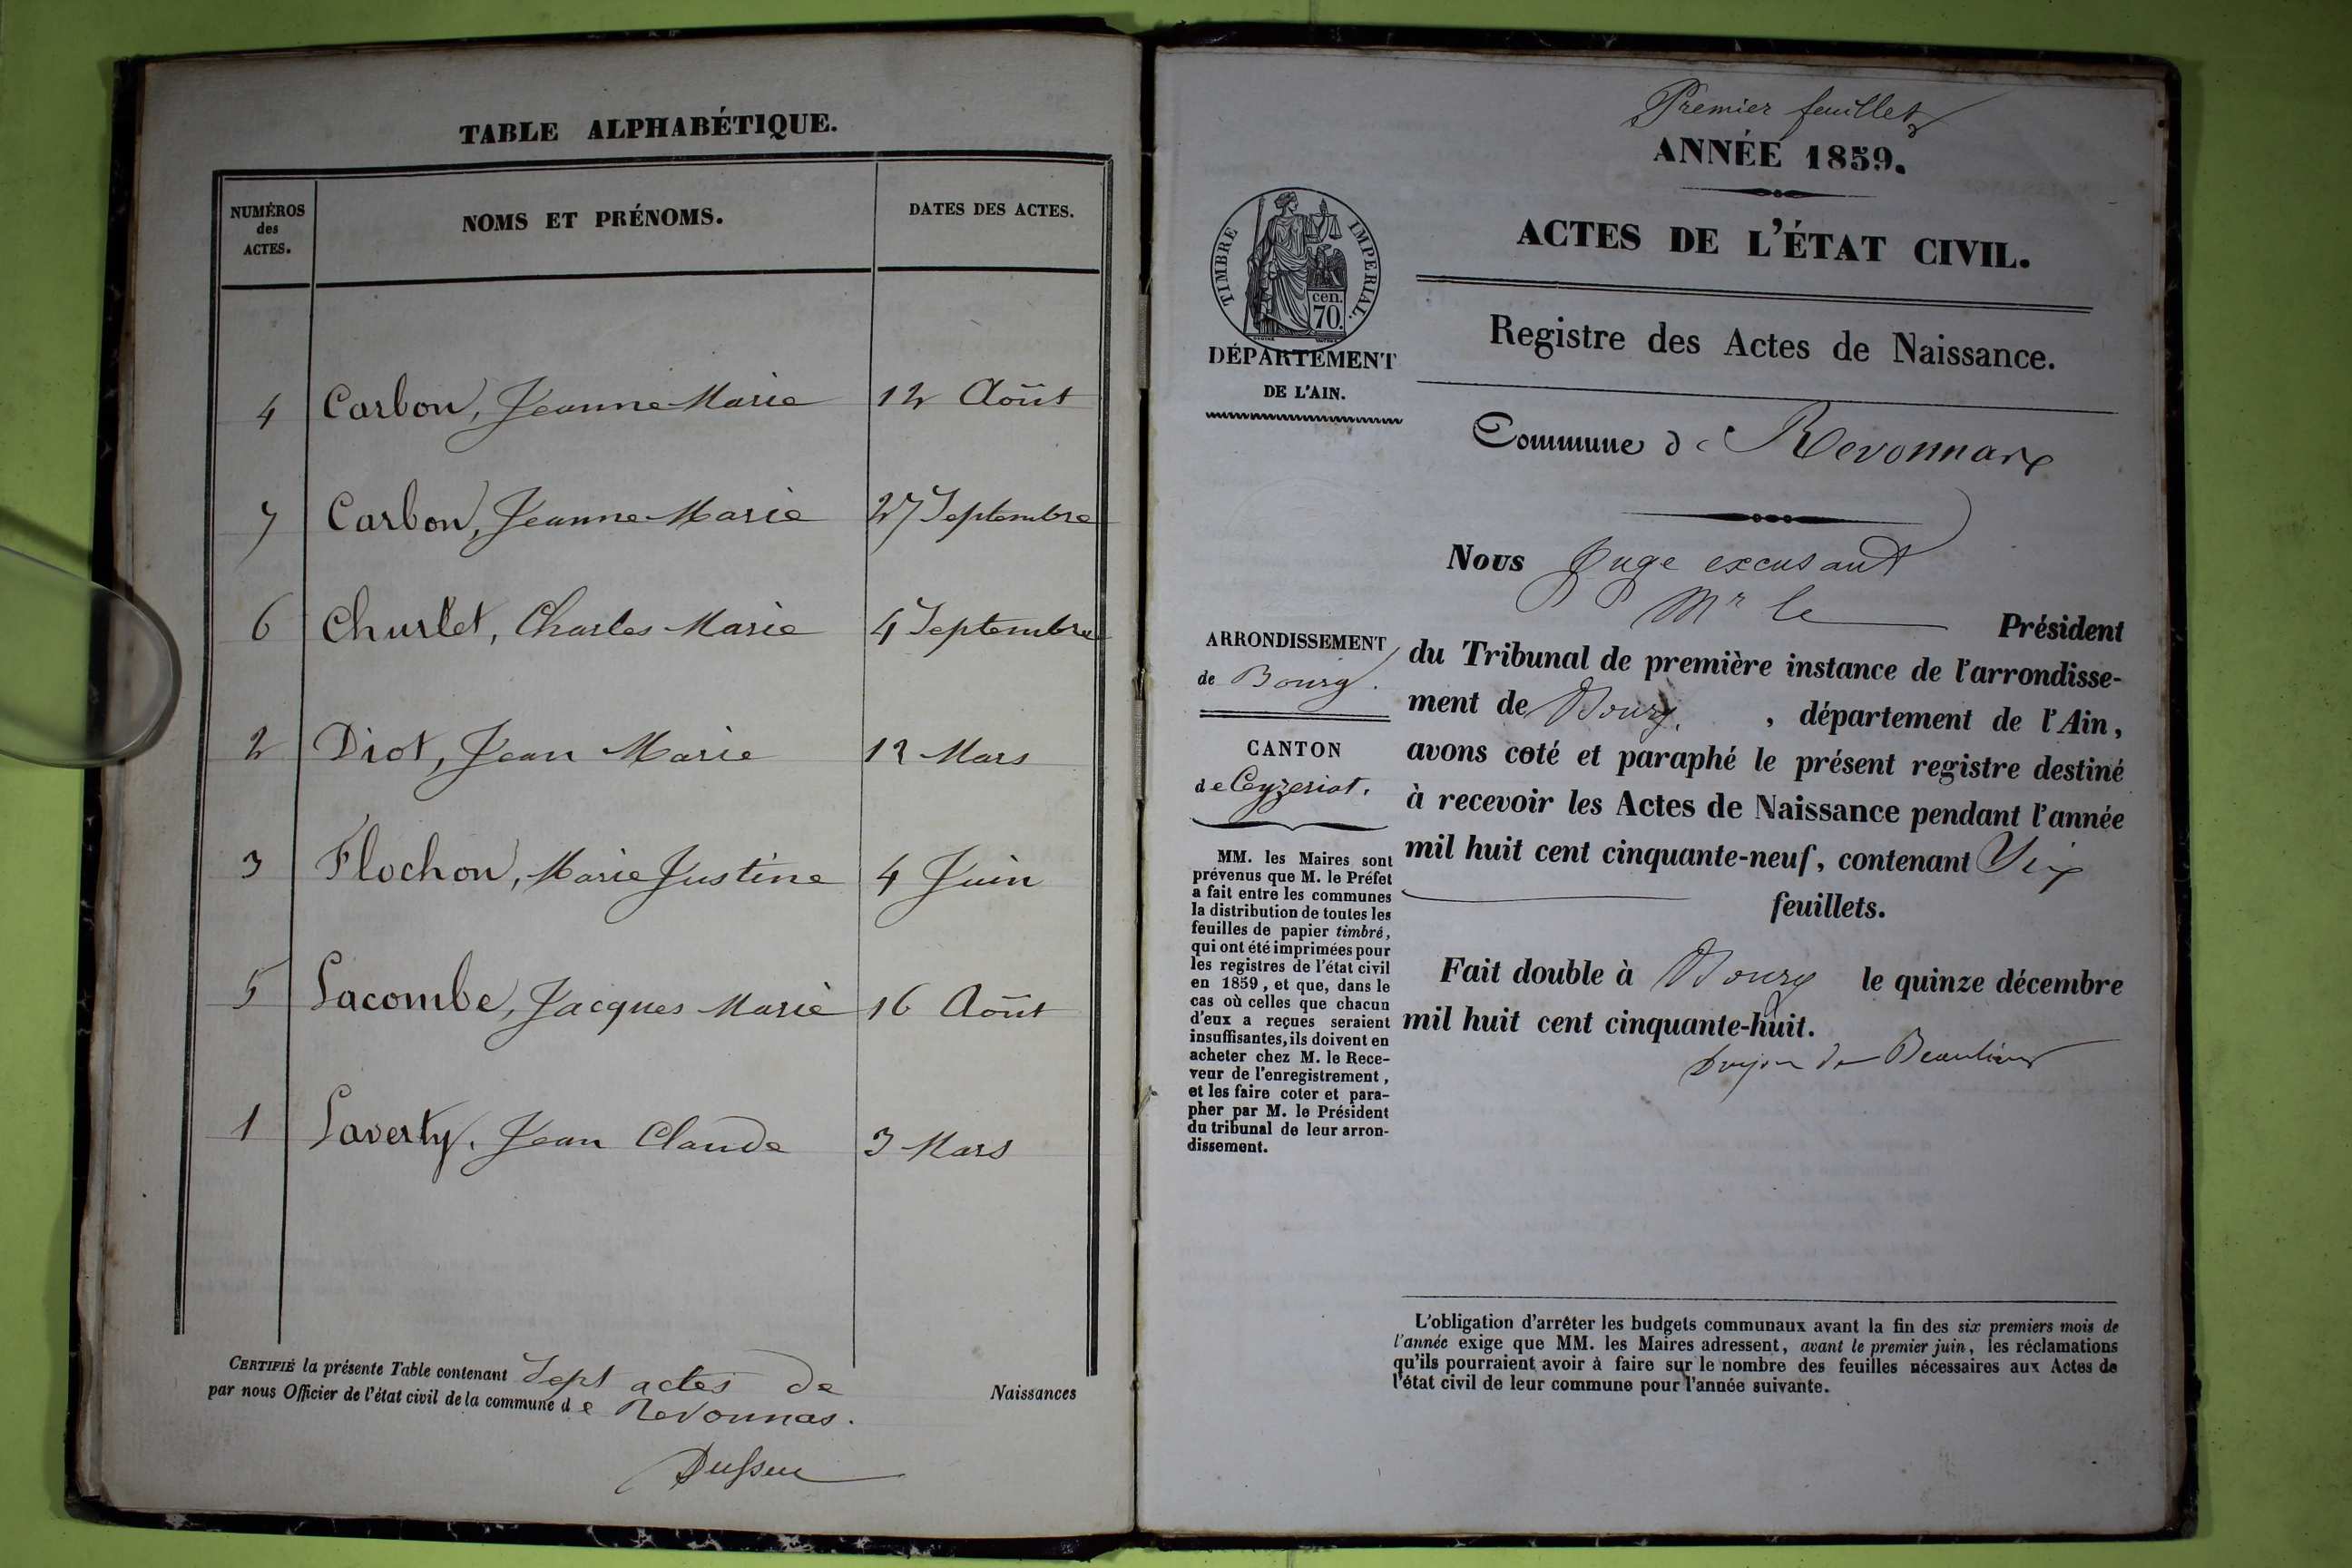 TABLE ALPHABÉTIQUE.
NUMÉROS des ACTES. NOMS ET PRÉNOMS. DATES DES ACTES.
4 Carbon, Jeanne Marie 12 Août
7 Carbon, Jeanne Marie 27 Septembre
6 Churlet, Charles Marie 4 Septembre
2 Diot, Jean Marie 12 Mars
3 Flochon, Marie Justine 4 Juin
5 Lacombe, Jacques Marie 16 Août
1 Laverty, Jean Claude 3 Mars
CERTIFIÉ la présente Table contenant Sept actes de Naissances
par nous Officier de l'état civil de la commune de Revonnas.
Premier feuillet
ANNÉE 1859.
ACTES DE L'ÉTAT CIVIL.
TIMBRE IMPERIAL.
cen.
70.
DÉPARTEMENT
DE L'AIN.
Registre des Actes de Naissance.
Commune de Revonnas
Nous Juge excusant
Mr le Président
ARRONDISSEMENT
de Bourg.
CANTON
de Ceyzeriat.
MM. les Maires sont
prévenus que M. le Préfet
a fait entre les communes
la distribution de toutes les
feuilles de papier timbré,
qui ont été imprimées pour
les registres de l'état civil
en 1859, et que, dans le
cas où celles que chacun
d'eux a reçues seraient
insuffisantes, ils doivent en
acheter chez M. le Rece-
veur de l'enregistrement,
et les faire coter et para-
pher par M. le Président
du tribunal de leur arron-
dissement.
du Tribunal de première instance de l'arrondisse-
ment de Bourg, département de l'Ain,
avons coté et paraphé le présent registre destiné
à recevoir les Actes de Naissance pendant l'année
mil huit cent cinquante-neuf, contenant Six
feuillets.
Fait double à Bourg le quinze décembre
mil huit cent cinquante-huit.
de Beaulieu
L'obligation d'arrêter les budgets communaux avant la fin des six premiers mois de
l'année exige que MM. les Maires adressent, avant le premier juin, les réclamations
qu'ils pourraient avoir à faire sur le nombre des feuilles nécessaires aux Actes de
l'état civil de leur commune pour l'année suivante.